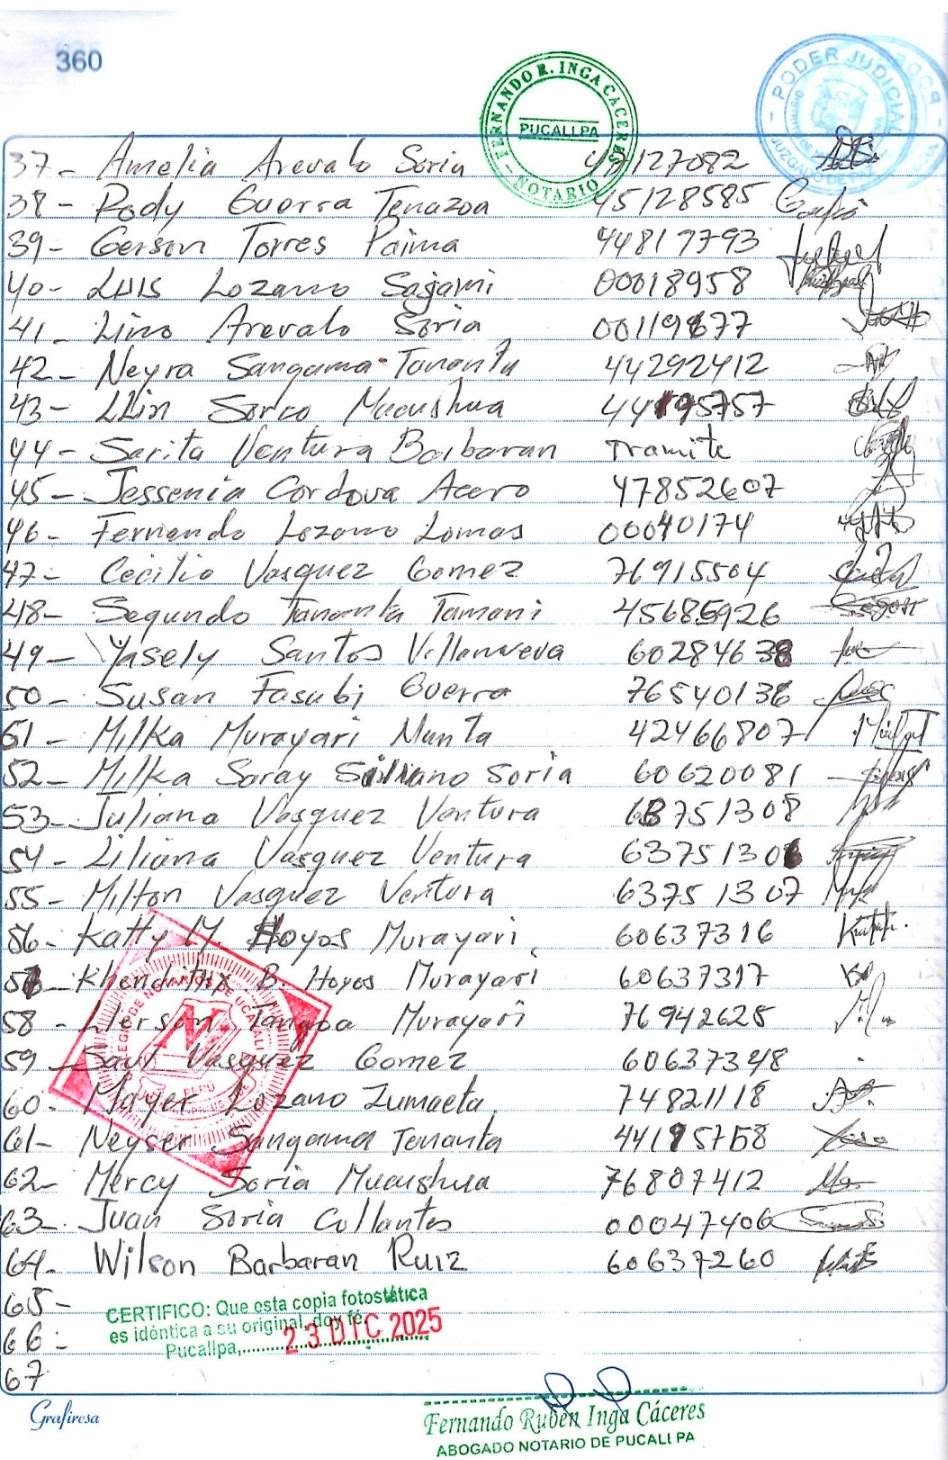 360
FERNANDO R. INGA CACERES
PUCALLPA
NOTARIO
PODER JUDICIAL
37- Amelia Arevalo Soria 47127082
38- Rody Guerra Tenazoa 45128585
39- Gerson Torres Paima 44819793
40- LUIS Lozano Sajami 00018958
41. Lino Arevalo Soria 00119877
42- Neyra Sangama Tananta 44292412
43- LLin Soria Muushua 44195757
44- Sarita Ventura Barbaran Tramite
45- Jessenia Cordova Acero 47852607
46- Fernando Lozano Lomas 00040174
47- Cecilio Vasquez Gomez 76915504
48- Segundo Tananta Tamani 45685926
49- Yasely Santos Villanueva 60284638
50- Susan Fasubi Guerra 76540136
51- Milka Murayari Nunta 42466807
52- Milka Saray Siliano Soria 60620081
53- Juliana Vasquez Ventura 63751308
54- Liliana Vasquez Ventura 63751306
55- Milton Vasquez Ventura 63751307
56- Katty M. Hoyos Murayari 60637316
57- B. Hoyos Murayari 60637317
58- Murayari 76942625
59 Saul Vasquez Gomez 60637348
60- Mayer Lozano Zumaeta 74821118
61- Neyser Sangama Tananta 44195758
62- Mercy Soria Muushua 76807412
63- Juan Soria Collantes 00047406
64- Wilson Barbaran Ruiz 60637260
65-
66-
67
CERTIFICO: Que esta copia fotostática
es idéntica a su original, doy fé.
Pucallpa, 23 DIC 2025
Grafiresa
Fernando Rubén Inga Cáceres
ABOGADO NOTARIO DE PUCALLPA